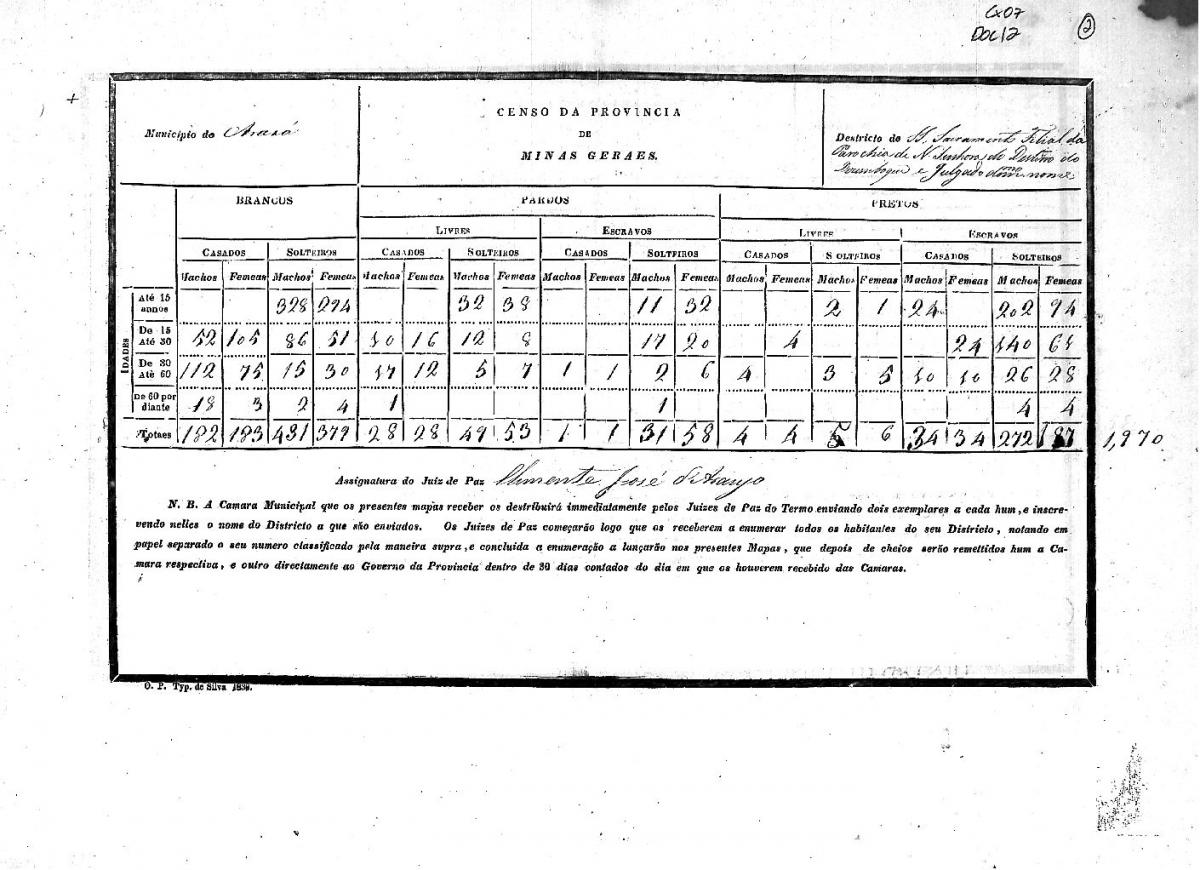 Cx07
Doc12
2
Municipio do Araxá
CENSO DA PROVINCIA
DE
MINAS GERAES.
Destricto do SS. Sacramento Filial da
Parochia de N Senhora do Desterro do
Dezemboque e Julgado do mmo nome
BRANCOS PARDOS PRETOS
LIVRES ESCRAVOS LIVRES ESCRAVOS
CASADOS SOLTEIROS CASADOS SOLTEIROS CASADOS SOLTEIROS CASADOS SOLTEIROS CASADOS SOLTEIROS
Machos Femeas Machos Femeas Machos Femeas Machos Femeas Machos Femeas Machos Femeas Machos Femeas Machos Femeas Machos Femeas Machos Femeas
IDADES
Até 15 annos 328 294 32 38 11 32 2 1 24 202 94
De 15 Até 30 52 105 86 51 10 16 12 8 17 20 4 24 140 61
De 30 Até 60 112 75 15 30 17 12 5 7 1 1 2 6 4 3 5 10 10 26 28
De 60 por diante 18 3 2 4 1 1 4 4
Totaes 182 183 431 379 28 28 49 53 1 1 31 58 4 4 5 6 34 34 272 187 1,970
Assignatura do Juiz de Paz Clemente José d'Araujo
N. B. A Camara Municipal que os presentes mapas receber os destribuirá immediatamente pelos Juizes de Paz do Termo enviando dois exemplares a cada hum, e inscre-
vendo nelles o nome do Districto a que são enviados. Os Juizes de Paz começarão logo que os receberem a enumerar todos os habitantes do seu Districto, notando em
papel separado o seu numero classificado pela maneira supra, e concluida a enumeração a lançarão nos presentes Mapas, que depois de cheios serão remettidos hum a Ca-
mara respectiva, e outro directamente ao Governo da Provincia dentro de 30 dias contados do dia em que os houverem recebido das Camaras.
O. P. Typ. de Silva